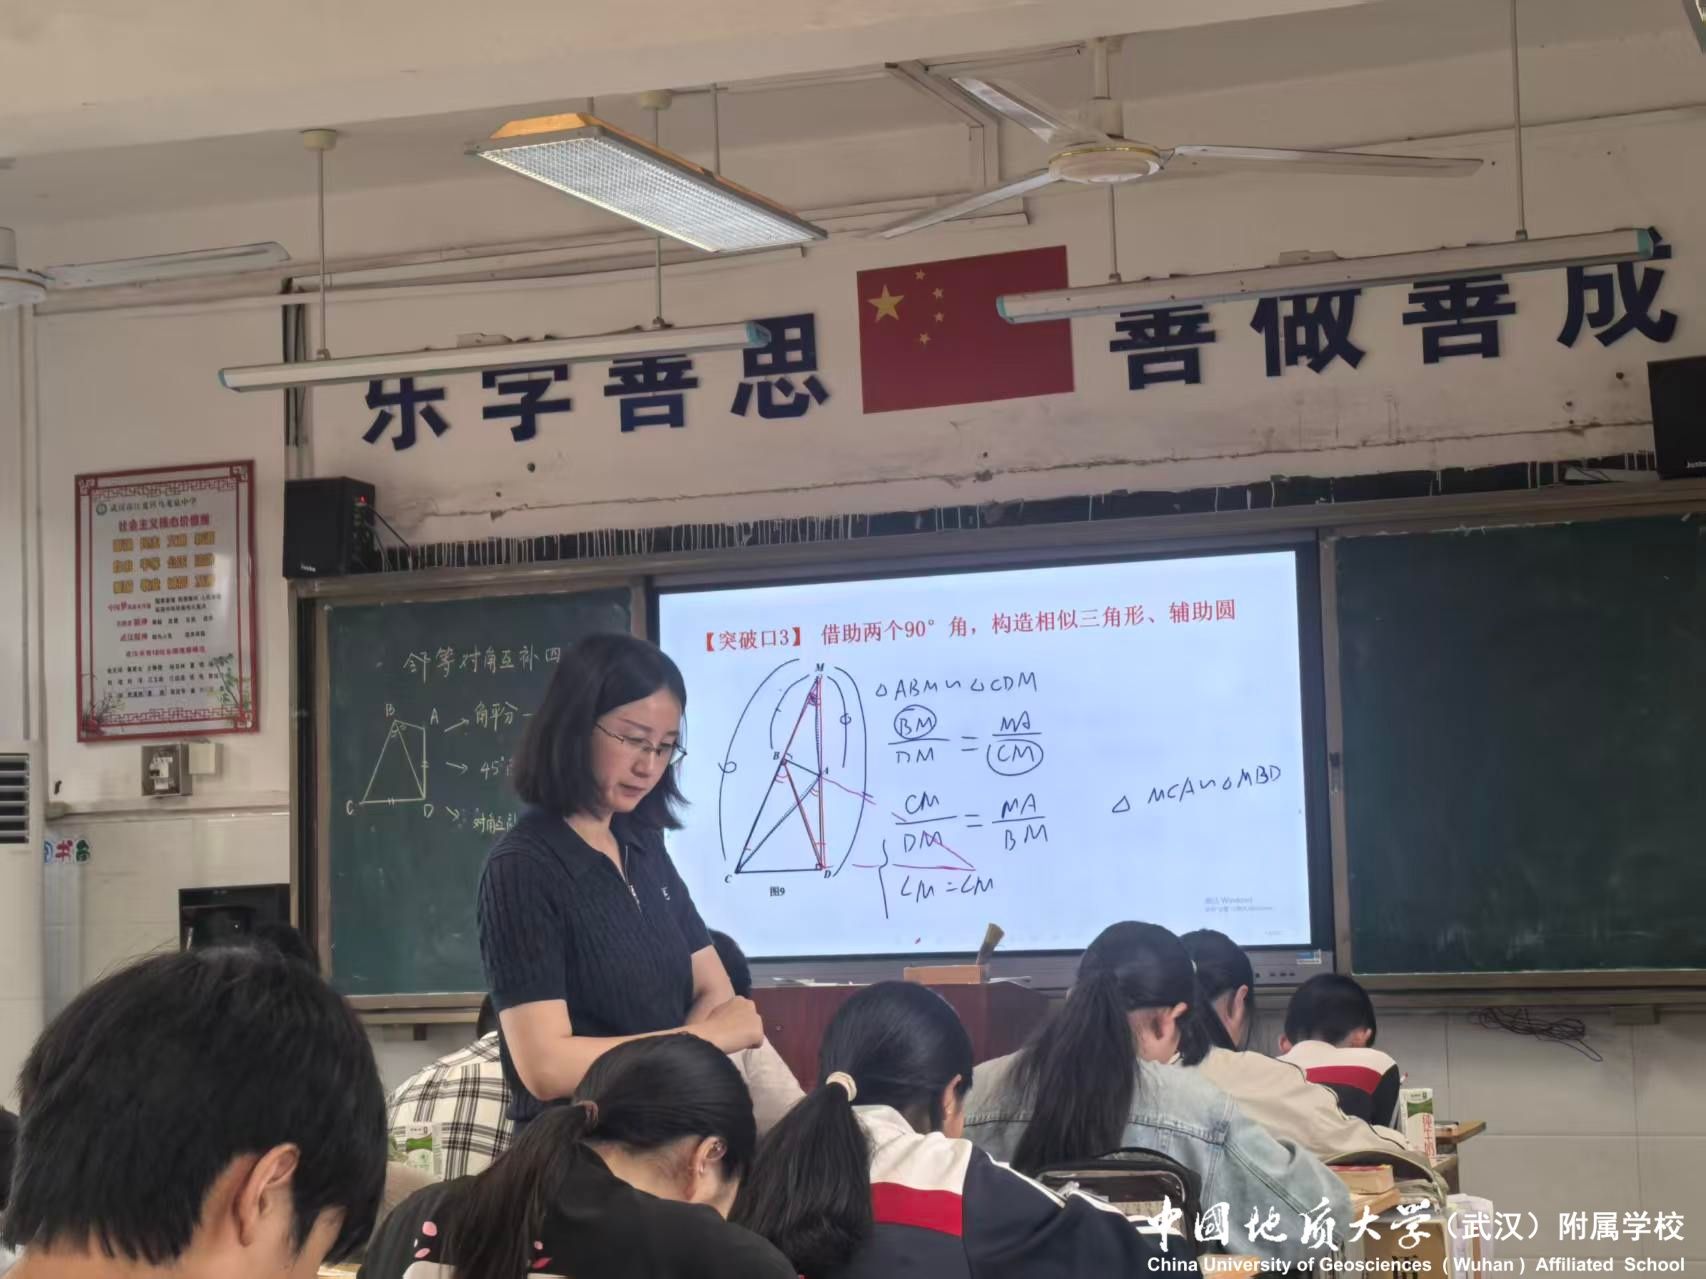 乐学善思
善做善成
武汉市江夏区乌龙泉中学
社会主义核心价值观
富强 民主 文明 和谐
自由 平等 公正 法治
爱国 敬业 诚信 友善
【突破口3】 借助两个90°角，构造相似三角形、辅助圆
邻等对角互补四
B
A
C
D
角平分
45°
对角互补
M
B
A
C
D
图9
△ABM∽△CDM
BM/DM = MA/CM
CM/DM = MA/BM
∠M=∠M
△MCA∽△MBD
激活 Windows
中国地质大学（武汉）附属学校
China University of Geosciences (Wuhan) Affiliated School